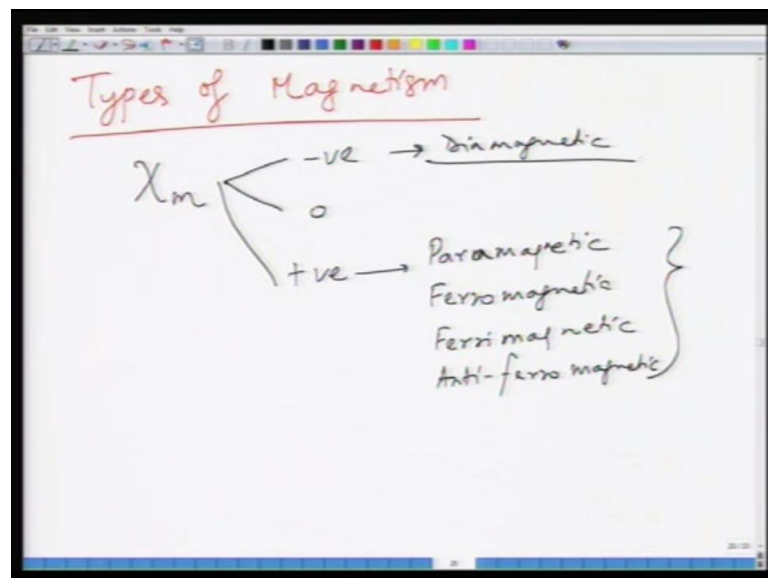 File Edit View Insert Actions Tools Help
Types of Magnetism
χm
-ve → Diamagnetic
0
+ve → Paramagnetic
Ferromagnetic
Ferrimagnetic
Anti-ferromagnetic